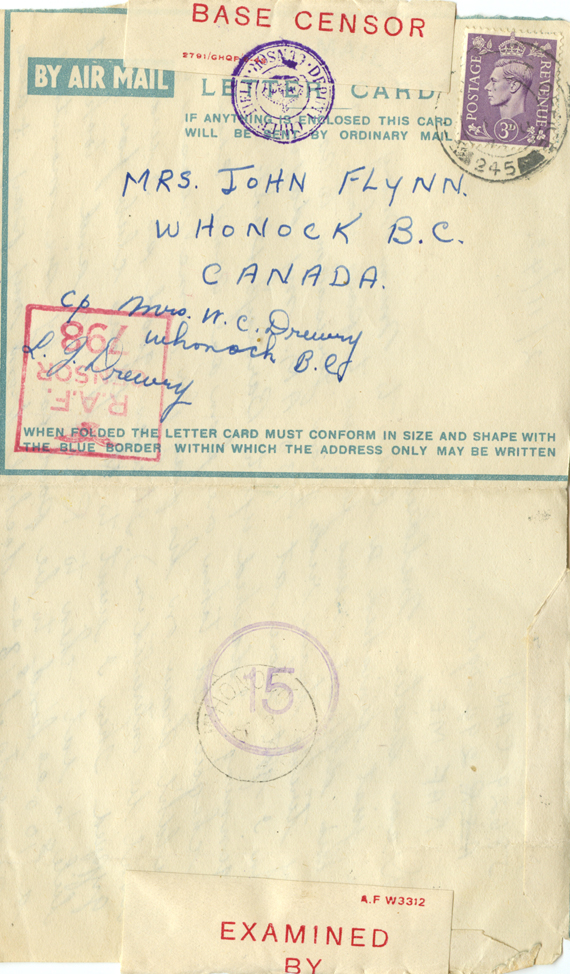 BASE CENSOR
2791/GHQP
BY AIR MAIL
LETTER CARD
IF ANYTHING IS ENCLOSED THIS CARD
WILL BE SENT BY ORDINARY MAIL
POSTAGE REVENUE
3D
245
MRS. JOHN FLYNN.
WHONOCK B.C.
CANADA.
C/o Mrs. W. C. Drewry
Whonock B.C.
L. J. Drewry
R.A.F.
CENSOR
798
WHEN FOLDED THE LETTER CARD MUST CONFORM IN SIZE AND SHAPE WITH
THE BLUE BORDER WITHIN WHICH THE ADDRESS ONLY MAY BE WRITTEN
15
A.F W3312
EXAMINED
BY